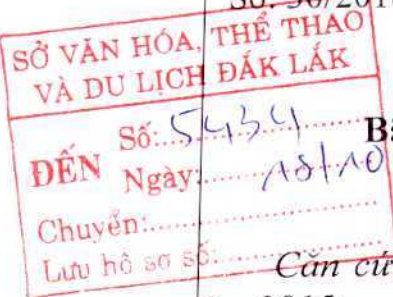 Số: 30/201
SỞ VĂN HÓA, THỂ THAO
VÀ DU LỊCH ĐẮK LẮK
ĐẾN
Số: 5434
Ngày: 18/10
Chuyển:
Lưu hồ sơ số:
Căn cứ
2015